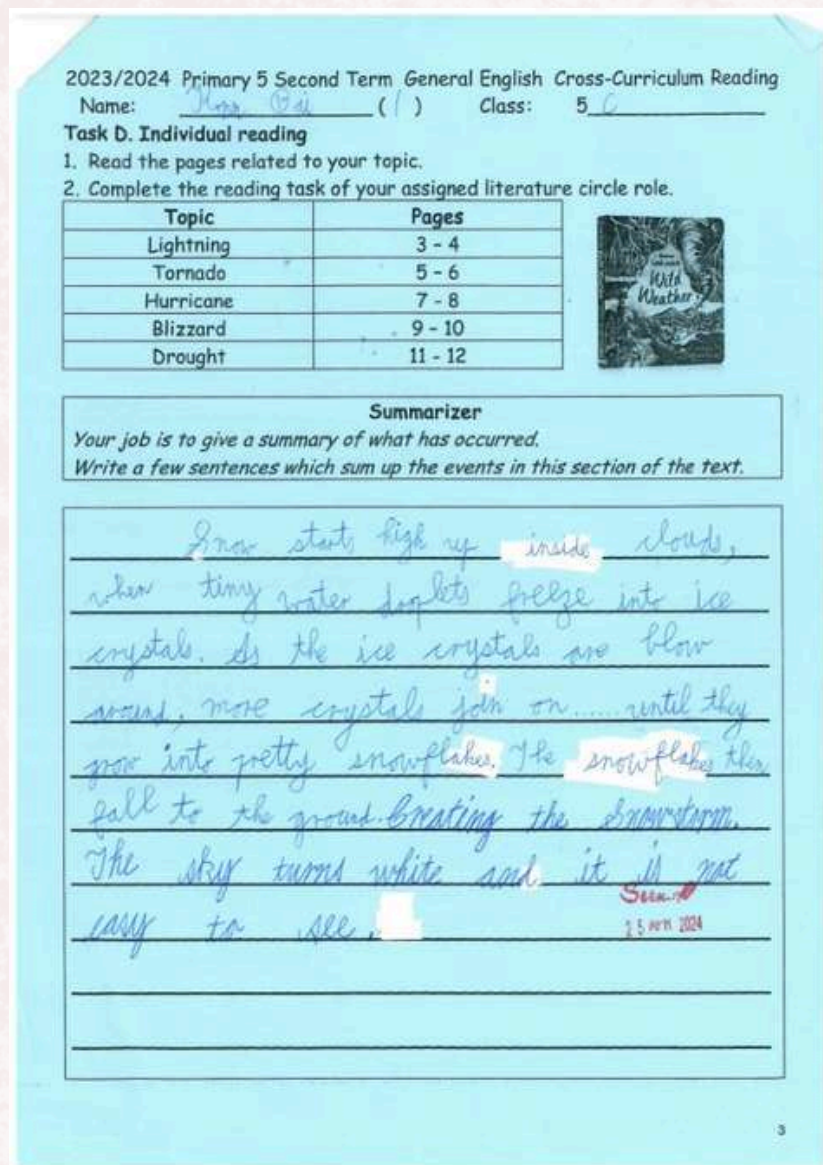 2023/2024 Primary 5 Second Term General English Cross-Curriculum Reading
Name: ( ) Class: 5 C
Task D. Individual reading
1. Read the pages related to your topic.
2. Complete the reading task of your assigned literature circle role.
Topic Pages
Lightning 3 - 4
Tornado 5 - 6
Hurricane 7 - 8
Blizzard 9 - 10
Drought 11 - 12
Wild
Weather
Summarizer
Your job is to give a summary of what has occurred.
Write a few sentences which sum up the events in this section of the text.
Snow starts high up inside clouds,
when tiny water droplets freeze into ice
crystals. As the ice crystals are blow
around, more crystals join on...... until they
grow into pretty snowflakes. The snowflakes then
fall to the ground. Creating the Snowstorm.
The sky turns white and it is not
easy to see.
Seen
25 2024
3